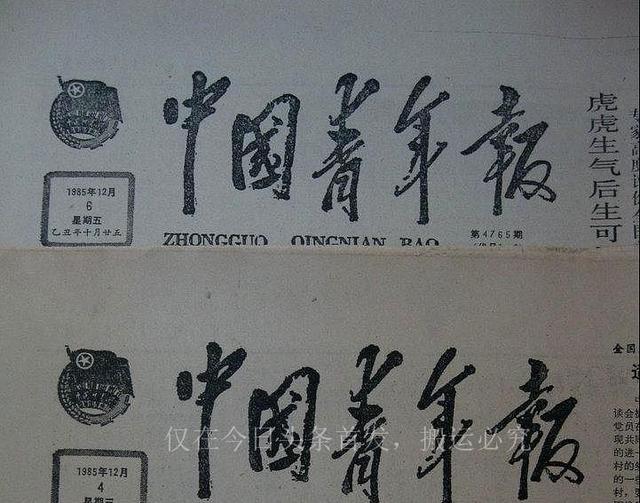 中国青年報
1985年12月
6
星期五
乙丑年十月廿五
ZHONGGUO QINGNIAN BAO
第4765期
虎虎生气后生可
中国青年報
1985年12月
4
星期三
全国
谈会
党员在
现共
的进一
村的
的一
村,
仅在今日头条首发，搬运必究